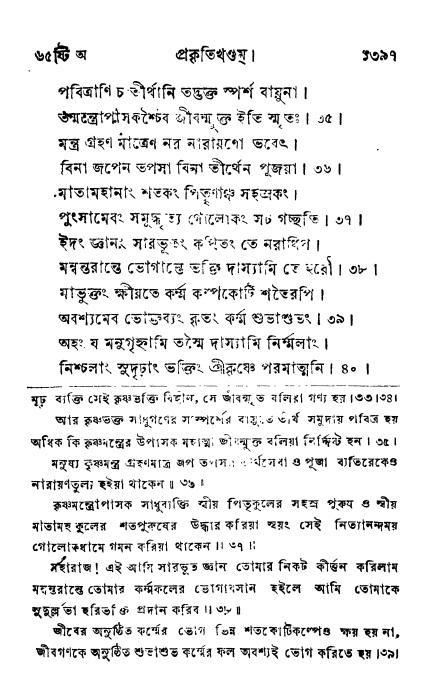 ৬৫ষ্টি অ প্রকৃতিখণ্ডম্। ১৩৯৭
পবিত্রাণি চ তীর্থানি তদ্ভক্ত স্পর্শ বায়ুনা।
তন্মন্ত্রোপাসকশ্চৈব জীবন্মুক্ত ইতি স্মৃতঃ। ৩৫।
মন্ত্র গ্রহণ মাত্রেণ নর নারায়ণো ভবেৎ।
বিনা জপেন তপসা বিনা তীর্থেন পূজয়া। ৩৬।
মাতামহানাং শতকং পিতৃণাঞ্চ সহস্রকং।
পুংসামেবং সমুদ্ধৃত্য গোলোকং সচ গচ্ছতি। ৩৭।
ইদং জ্ঞানং সারভূতং কথিতং তে নরাধিপ।
মন্বন্তরান্তে ভোগান্তে ভক্তিং দাস্যামি তে হরৌ। ৩৮।
মাভুক্তং ক্ষীয়তে কর্ম্ম কল্পকোটি শতৈরপি।
অবশ্যমেব ভোক্তব্যং কৃতং কর্ম্ম শুভাশুভং। ৩৯।
অহং য মনুগৃহ্নামি তস্মৈ দাস্যামি নির্ম্মলাং।
নিশ্চলাং সুদৃঢ়াং ভক্তিং শ্রীকৃষ্ণে পরমাত্মনি। ৪০।
মূঢ় ব্যক্তি সেই কৃষ্ণভক্তি বিহীন, সে জীবন্মৃত বলিয়া গণ্য হয়।৩৩।৩৪।
আর কৃষ্ণভক্ত সাধুগণের সংস্পর্শের বায়ুতে তীর্থ সমুদায় পবিত্র হয়
অধিক কি কৃষ্ণমন্ত্রের উপাসক মহাত্মা জীবন্মুক্ত বলিয়া নির্দ্দিষ্ট হন। ৩৫।
মনুষ্য কৃষ্ণমন্ত্র গ্রহণমাত্র জপ তপস্যা তীর্থসেবা ও পূজা ব্যতিরেকেও
নারায়ণতুল্য হইয়া থাকেন॥ ৩৬॥
কৃষ্ণমন্ত্রোপাসক সাধুব্যক্তি স্বীয় পিতৃকুলের সহস্র পুরুষ ও স্বীয়
মাতামহ কুলের শতপুরুষের উদ্ধার করিয়া স্বয়ং সেই নিত্যানন্দময়
গোলোকধামে গমন করিয়া থাকেন॥ ৩৭॥
মহারাজ! এই আমি সারভূত জ্ঞান তোমার নিকট কীর্ত্তন করিলাম
মন্বন্তরান্তে তোমার কর্ম্মফলের ভোগাবসান হইলে আমি তোমাকে
সুদুল্লভা হরিভক্তি প্রদান করিব॥ ৩৮॥
জীবের অনুষ্ঠিত কর্ম্মের ভোগ ভিন্ন শতকোটিকল্পেও ক্ষয় হয় না,
জীবগণকে অনুষ্ঠিত শুভাশুভ কর্ম্মের ফল অবশ্যই ভোগ করিতে হয়।৩৯।